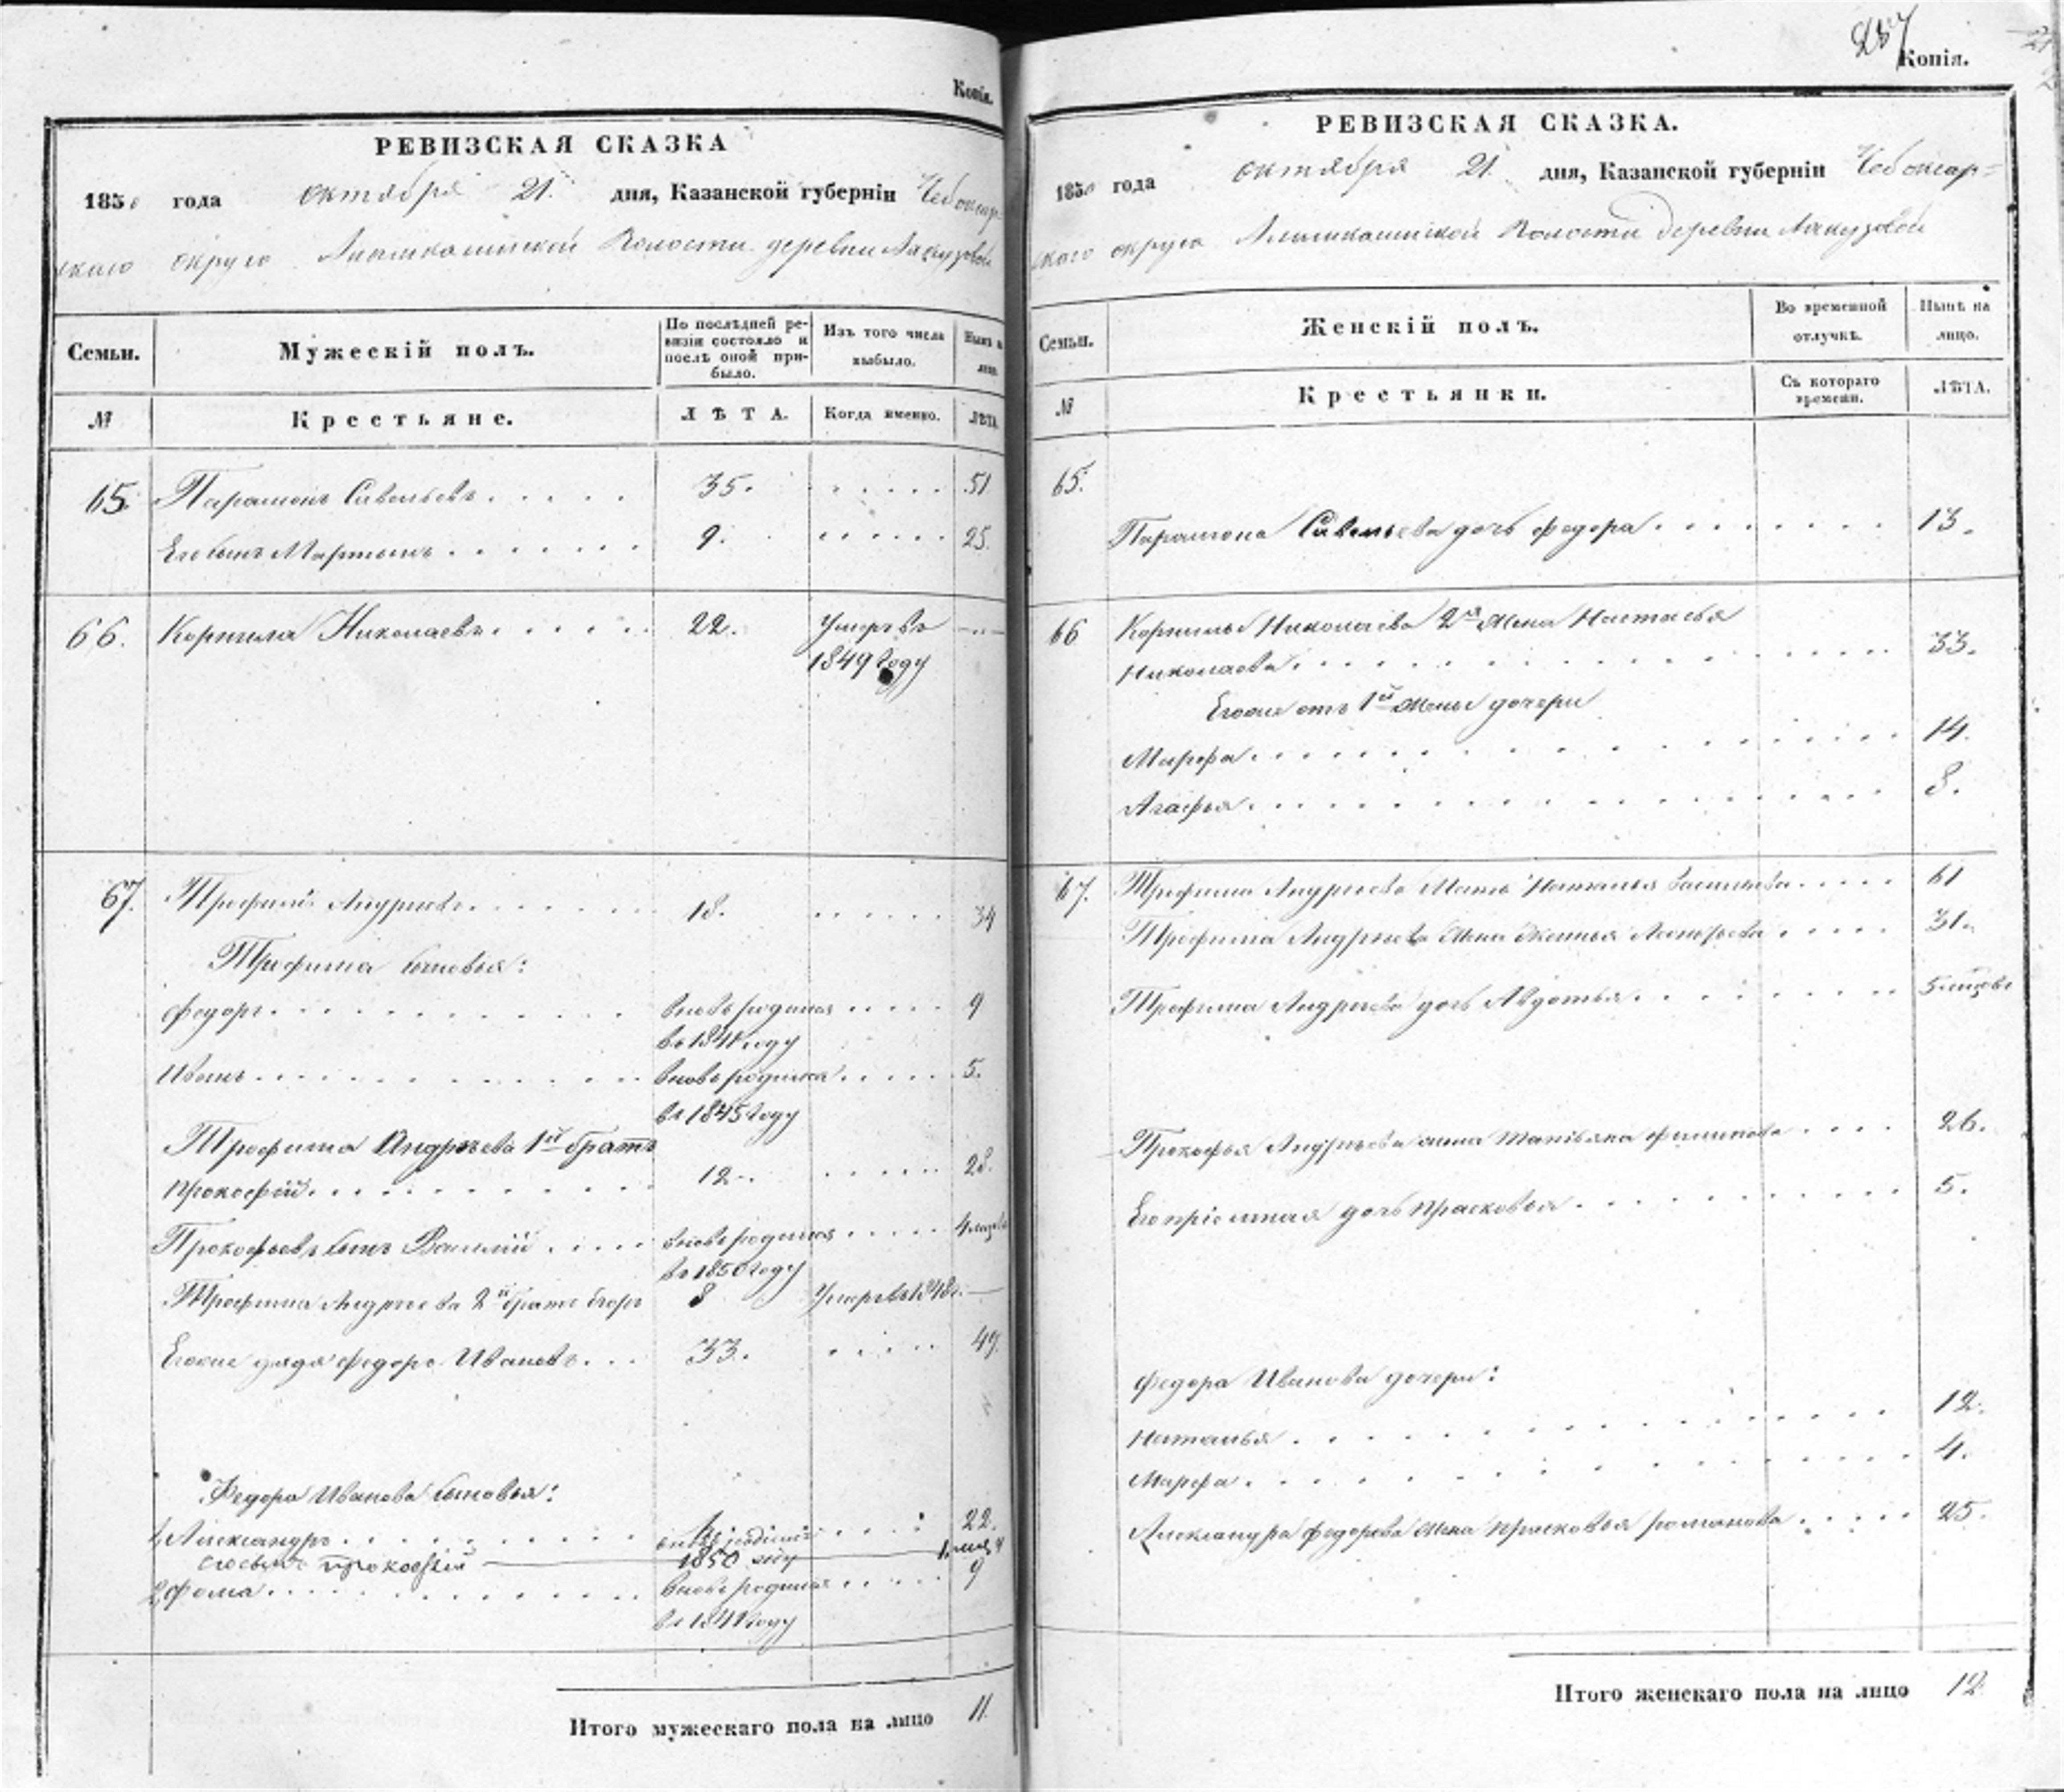 Копія.
РЕВИЗСКАЯ СКАЗКА
1850 года октября 21. дня, Казанской губерніи Чебоксар-
скаго округа Волости деревни
Семьи. Мужескій полъ. По послѣдней ре-визіи состояло и послѣ оной при-было. Изъ того числа выбыло. Нынѣ на лицо.
№ Крестьяне. ЛѢТА. Когда именно. ЛѢТА.
65. Парамонъ Савельевъ 35. 51
Его сынъ Мартынъ 9. 25.
66. Корнила Николаевъ 22. Умеръ въ
1849 году
67. Трофимъ Андреевъ 18. 34
Трофима сыновья:
Федоръ вновь родился 9
въ 1841 году
Иванъ вновь родился 5.
въ 1845 году
Трофима Андреева 1й братъ
Прокофій 12. 28.
Прокофьевъ сынъ Василій вновь родился 4 месяца
въ 1850 году
Трофима Андреева 2й братъ Егоръ 8 Умеръ въ 1848 г.
Его же дядя Федоръ Ивановъ 33. 49.
Федора Иванова сыновья:
1, Александръ 22.
сынъ Прокофій 1850 году
2, Фома вновь родился 9
въ 1841 году
Итого мужескаго пола на лицо 11.
237
Копія.
РЕВИЗСКАЯ СКАЗКА.
1850 года октября 21. дня, Казанской губерніи Чебоксар-
скаго округа Волости деревни
Семьи. Женскій полъ. Во временной отлучкѣ. Нынѣ на лицо.
№ Крестьянки. Съ котораго времени. ЛѢТА.
65.
Парамона Савельева дочь Федора 13.
66 Корнилы Николаева 2я жена Настасья
Николаева 33.
Его же отъ 1й жены дочери
Марфа 14.
Агафья 8.
67. Трофима Андреева мать Наталья Васильева 61
Трофима Андреева жена Леонтьева 31.
Трофима Андреева дочь Авдотья 5 месяцовъ
Прокофья Андреева жена Татьяна Филипова 26.
Его пріемная дочь Прасковья 5.
Федора Иванова дочери:
Наталья 12.
Марфа 4.
Александра Федорова жена Прасковья Романова 25.
Итого женскаго пола на лицо 12